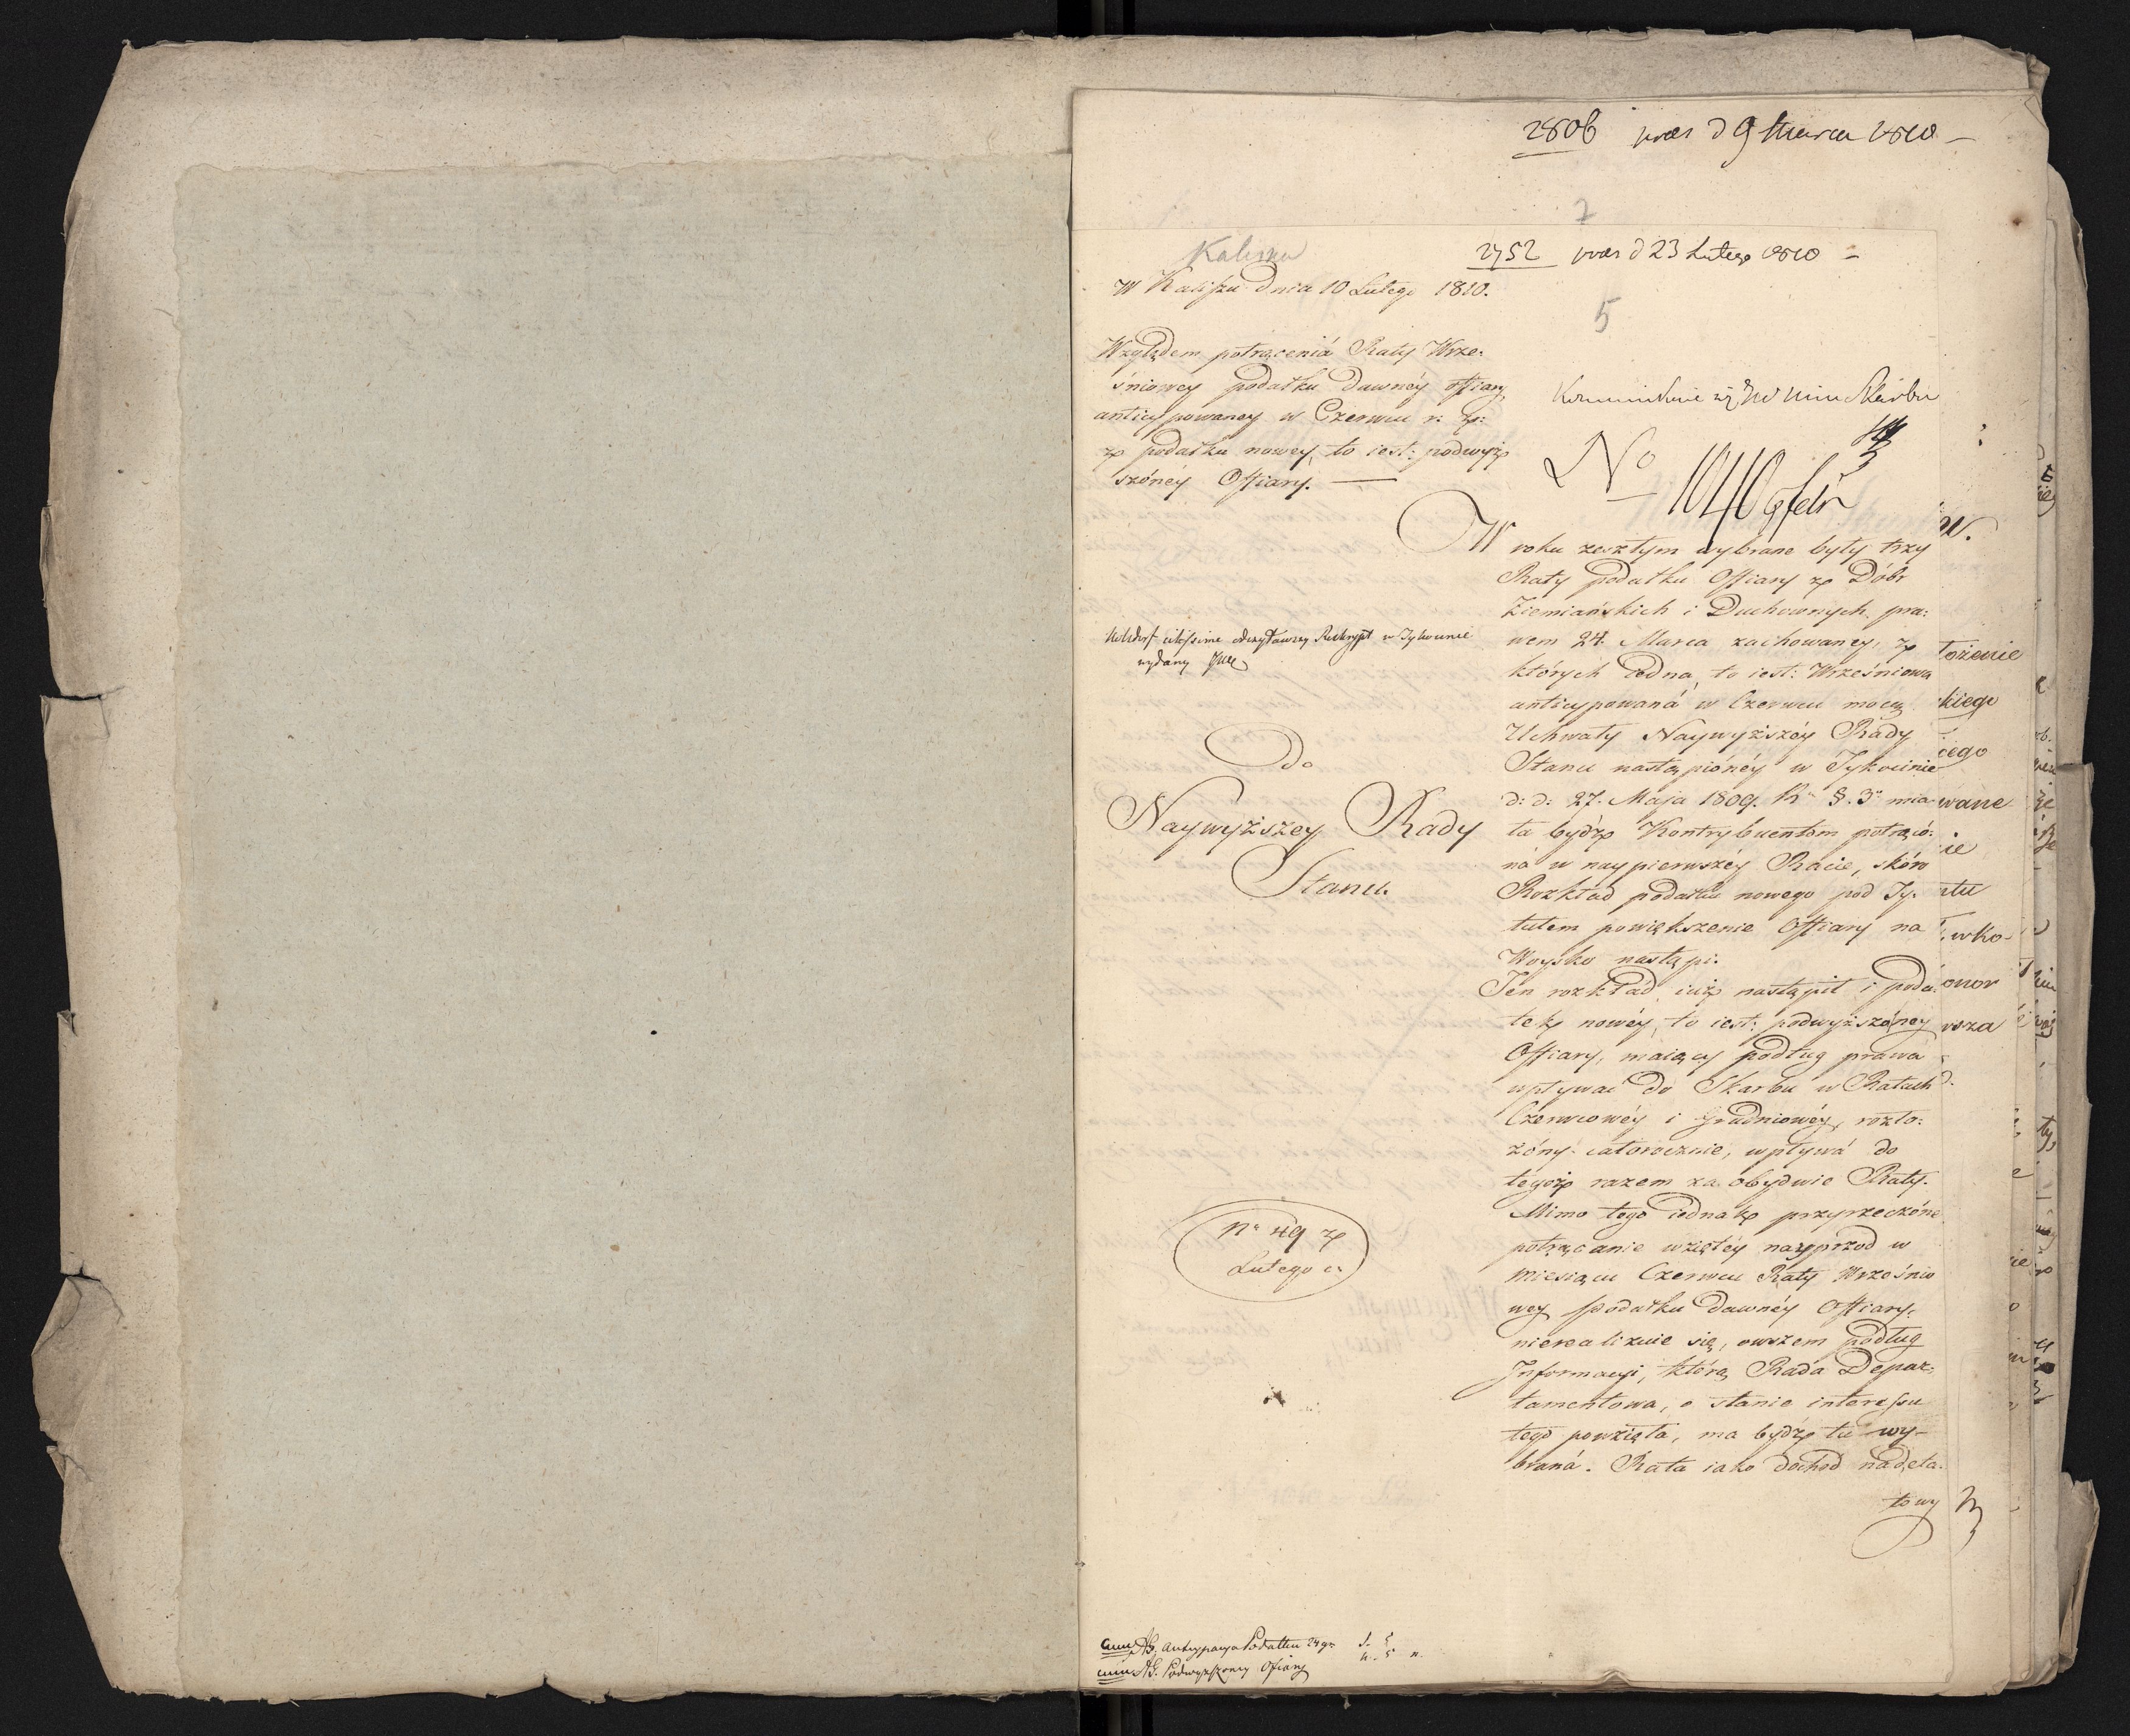 2806 praes d 9 Marca 1810 –
2
Kalisza
2752 praes d 23 Lutego 1810 –
W Kaliszu dnia 10 Lutego 1810.
5
Względem potrąceniá Raty Wrze:
śniowey podatku dawnéy offiary
anticypowaney w Czerwcu r: z:
z podatku nowey, to iest: podwyż
szónéy Offiary. —
No 1040
W roku zeszłym wybrane były trzy
Raty podatku Offiary z Dóbr
Ziemiańskich i Duchownych pra:
wem 24. Marca zachowaney, z
których iedna, to iest: Wrześniowa
anticypowaná w Czerwcu mocą
Uchwały Naywyższéy Rady
Stanu nastąpiónéy w Tykocinie
d: d: 27. Maja 1809. R. §. 3. mia
ta bydź Kontrybuentom potrąció:
ná w naypierwszéy Racie, skóro
Rozkład podatku nowego pod Ty:
tułem powiększenie Offiary na
Woysko nastąpi.
Ten rozkład iuż nastąpił i poda:
tek nowéy, to iest: podwyższónéy
Offiary, maiący podług prawa
wpływać do Skarbu w Ratach
Czerwcowéy i Grudniowéy, rozło:
żóny całorocznie, wpływá do
tegoż razem za obydwie Raty.
Mimo tego iednak przyrzeczóne
potrącanie wziętéy naprzod w
miesiącu Czerwcu Raty Wrześnio
wey podatku dawnéy Offiary,
nierealizuie się, owszem podług
Informacyi, którą Rada Depar:
tamentowa, o stanie interessu
tego powzięła, ma bydź ta wy-
braná. Rata iako dochód nadeta.
towy
wydany
Do
Naywyższey Rady
Stanu.
No 49 z
Lutego c.
Antycypacya Podatku 24 gr.
Podwyższoney Ofiary